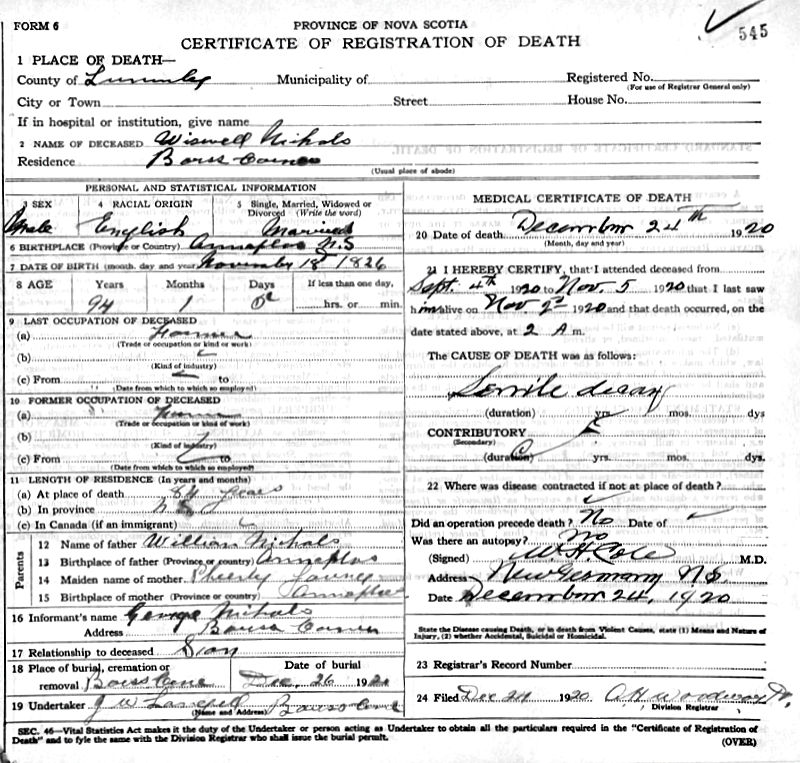 FORM 6
PROVINCE OF NOVA SCOTIA
545
CERTIFICATE OF REGISTRATION OF DEATH
1 PLACE OF DEATH—
County of Municipality of Registered No.
(For use of Registrar General only)
City or Town Street House No.
If in hospital or institution, give name
2 NAME OF DECEASED Wiswell Nichols
Residence
(Usual place of abode)
PERSONAL AND STATISTICAL INFORMATION
3 SEX 4 RACIAL ORIGIN 5 Single, Married, Widowed or Divorced (Write the word)
Male English Married
6 BIRTHPLACE (Province or Country) N.S
7 DATE OF BIRTH (month, day and year) 18 1826
8 AGE Years Months Days If less than one day,
94 1 hrs. or min.
9 LAST OCCUPATION OF DECEASED
(a) Farmer
(Trade or occupation or kind of work)
(b)
(Kind of industry)
(c) From to
(Date from which to which so employed)
10 FORMER OCCUPATION OF DECEASED
(a)
(Trade or occupation or kind of work)
(b)
(Kind of industry)
(c) From to
(Date from which to which so employed)
11 LENGTH OF RESIDENCE (In years and months)
(a) At place of death 84 years
(b) In province N S
(c) In Canada (if an immigrant)
Parents
12 Name of father William Nichols
13 Birthplace of father (Province or country)
14 Maiden name of mother
15 Birthplace of mother (Province or country)
16 Informant's name George Nichols
Address
17 Relationship to deceased Son
18 Place of burial, cremation or removal Date of burial
Dec. 26 1920
19 Undertaker J W
(Name and Address)
MEDICAL CERTIFICATE OF DEATH
20 Date of death December 24th 1920
(Month, day and year)
21 I HEREBY CERTIFY, that I attended deceased from
Sept. 4th 1920 to Nov. 5 1920 that I last saw
him alive on Nov 1920 and that death occurred, on the
date stated above, at 2 A m.
The CAUSE OF DEATH was as follows:
Senile decay
(duration) yrs. mos. dys
CONTRIBUTORY
(Secondary)
(duration) yrs. mos. dys.
22 Where was disease contracted if not at place of death?
Did an operation precede death? No Date of
Was there an autopsy? No
(Signed) W H Cole M.D.
Address New Germany N S
Date December 24, 1920
State the Disease causing Death, or in death from Violent Causes, state (1) Means and Nature of
Injury, (2) whether Accidental, Suicidal or Homicidal.
23 Registrar's Record Number
24 Filed Dec 24 1920
Division Registrar
SEC. 46—Vital Statistics Act makes it the duty of the Undertaker or person acting as Undertaker to obtain all the particulars required in the "Certificate of Registration of
Death" and to fyle the same with the Division Registrar who shall issue the burial permit.
(OVER)